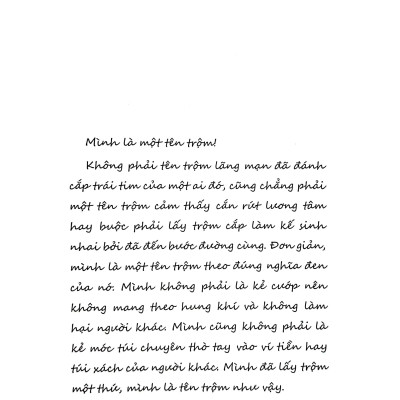 Mình là một tên trộm!
Không phải tên trộm lãng mạn đã đánh
cắp trái tim của một ai đó, cũng chẳng phải
một tên trộm cảm thấy cắn rứt lương tâm
hay buộc phải lấy trộm cắp làm kế sinh
nhai bởi đã đến bước đường cùng. Đơn giản,
mình là một tên trộm theo đúng nghĩa đen
của nó. Mình không phải là kẻ cướp nên
không mang theo hung khí và không làm
hại người khác. Mình cũng không phải là
kẻ móc túi chuyên thờ tay vào ví tiền hay
túi xách của người khác. Mình đã lấy trộm
một thứ, mình là tên trộm như vậy.